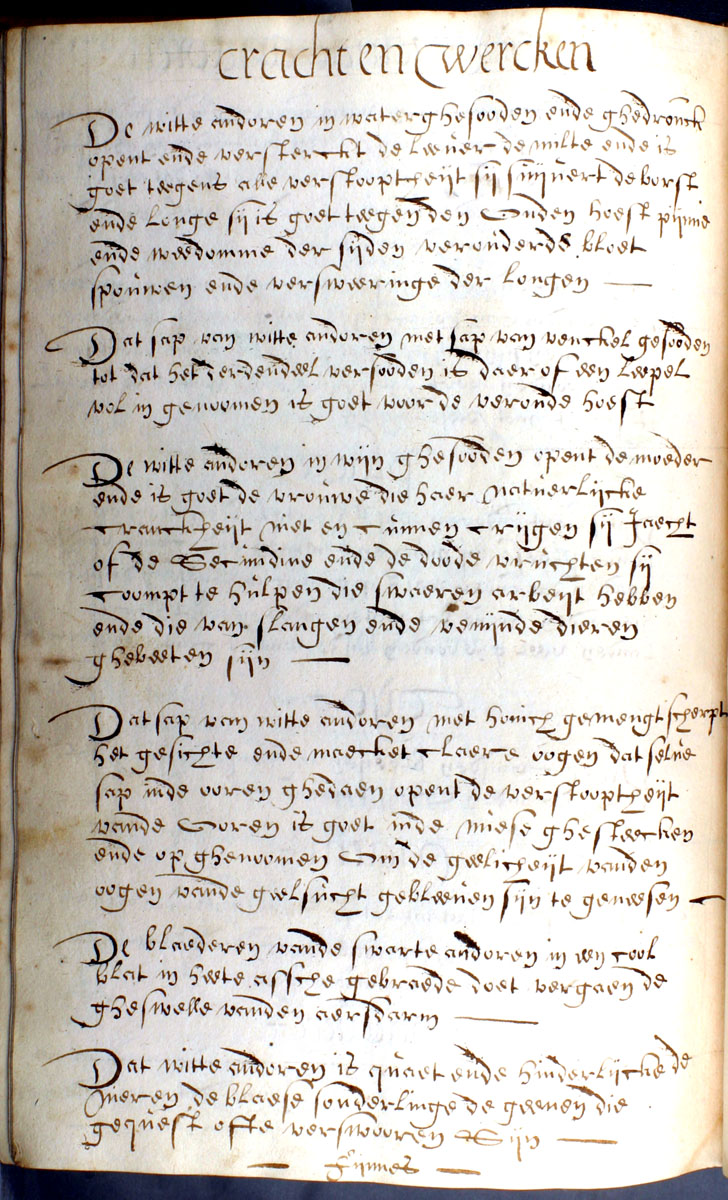 cracht en Wercken
De witte andoren in water ghesooden ende ghedronck
opent ende versterckt de leever de milte ende is
goet teegens alle verstooptheijt sij suijvert de borst
ende Longe sij is goet teegen den Ouden hoest pijnne
ende weedomme der sijden verouderde bloet
spouwen ende versweeringe der Longen
Dat sap van witte andoren met sap van venckel gesooden
tot dat het derdendeel versooden is daer of een Leepel
vol in genoomen is goet voor de veroude hoest
De witte andoren in wijn ghesooden opent de moeder
ende is goet de vrouwe die haer natuerlijcke
cranckheijt niet en cunnen crijgen sij Jaecht
of de Secundine ende de doode vruchten sij
coompt te hulpen die swaeren arbeijt hebben
ende die van slangen ende venijnde dieren
ghebeeten sijn
Dat sap van witte andoren met honich gemengt scherpt
het gesichte ende maecket claere oogen dat selve
sap inde ooren ghedaen opent de verstooptheijt
vande Ooren is goet inde niese ghesteecken
ende op ghenoomen Om de geelicheijt vanden
oogen vande geelsucht gebleeven sijn te geneesen
De blaederen vande swarte andoren in een cool
blat in heete assche gebraede doet vergaen de
gheswelle vanden aersdarm
Dat witte andoren is quaet ende hinderlijcke de
nieren de blaese sonderlinge de geenen die
gequest ofte verswooren Sijn
Fijnnes